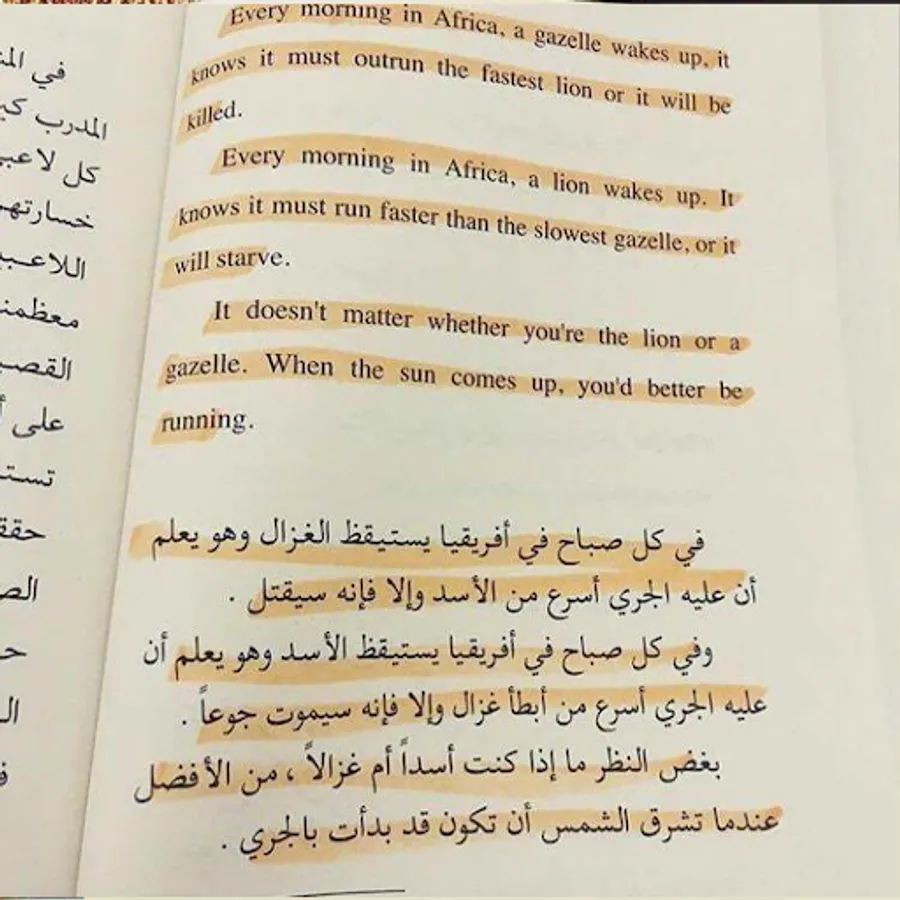 Every morning in Africa, a gazelle wakes up, it
knows it must outrun the fastest lion or it will be
killed.
Every morning in Africa, a lion wakes up. It
knows it must run faster than the slowest gazelle, or it
will starve.
It doesn't matter whether you're the lion or a
gazelle. When the sun comes up, you'd better be
running.
في كل صباح في أفريقيا يستيقظ الغزال وهو يعلم
أن عليه الجري أسرع من الأسد وإلا فإنه سيقتل .
وفي كل صباح في أفريقيا يستيقظ الأسد وهو يعلم أن
عليه الجري أسرع من أبطأ غزال وإلا فإنه سيموت جوعاً .
بغض النظر ما إذا كنت أسداً أم غزالاً ، من الأفضل
عندما تشرق الشمس أن تكون قد بدأت بالجري .
في
المدرب
كل
معظمنا
على